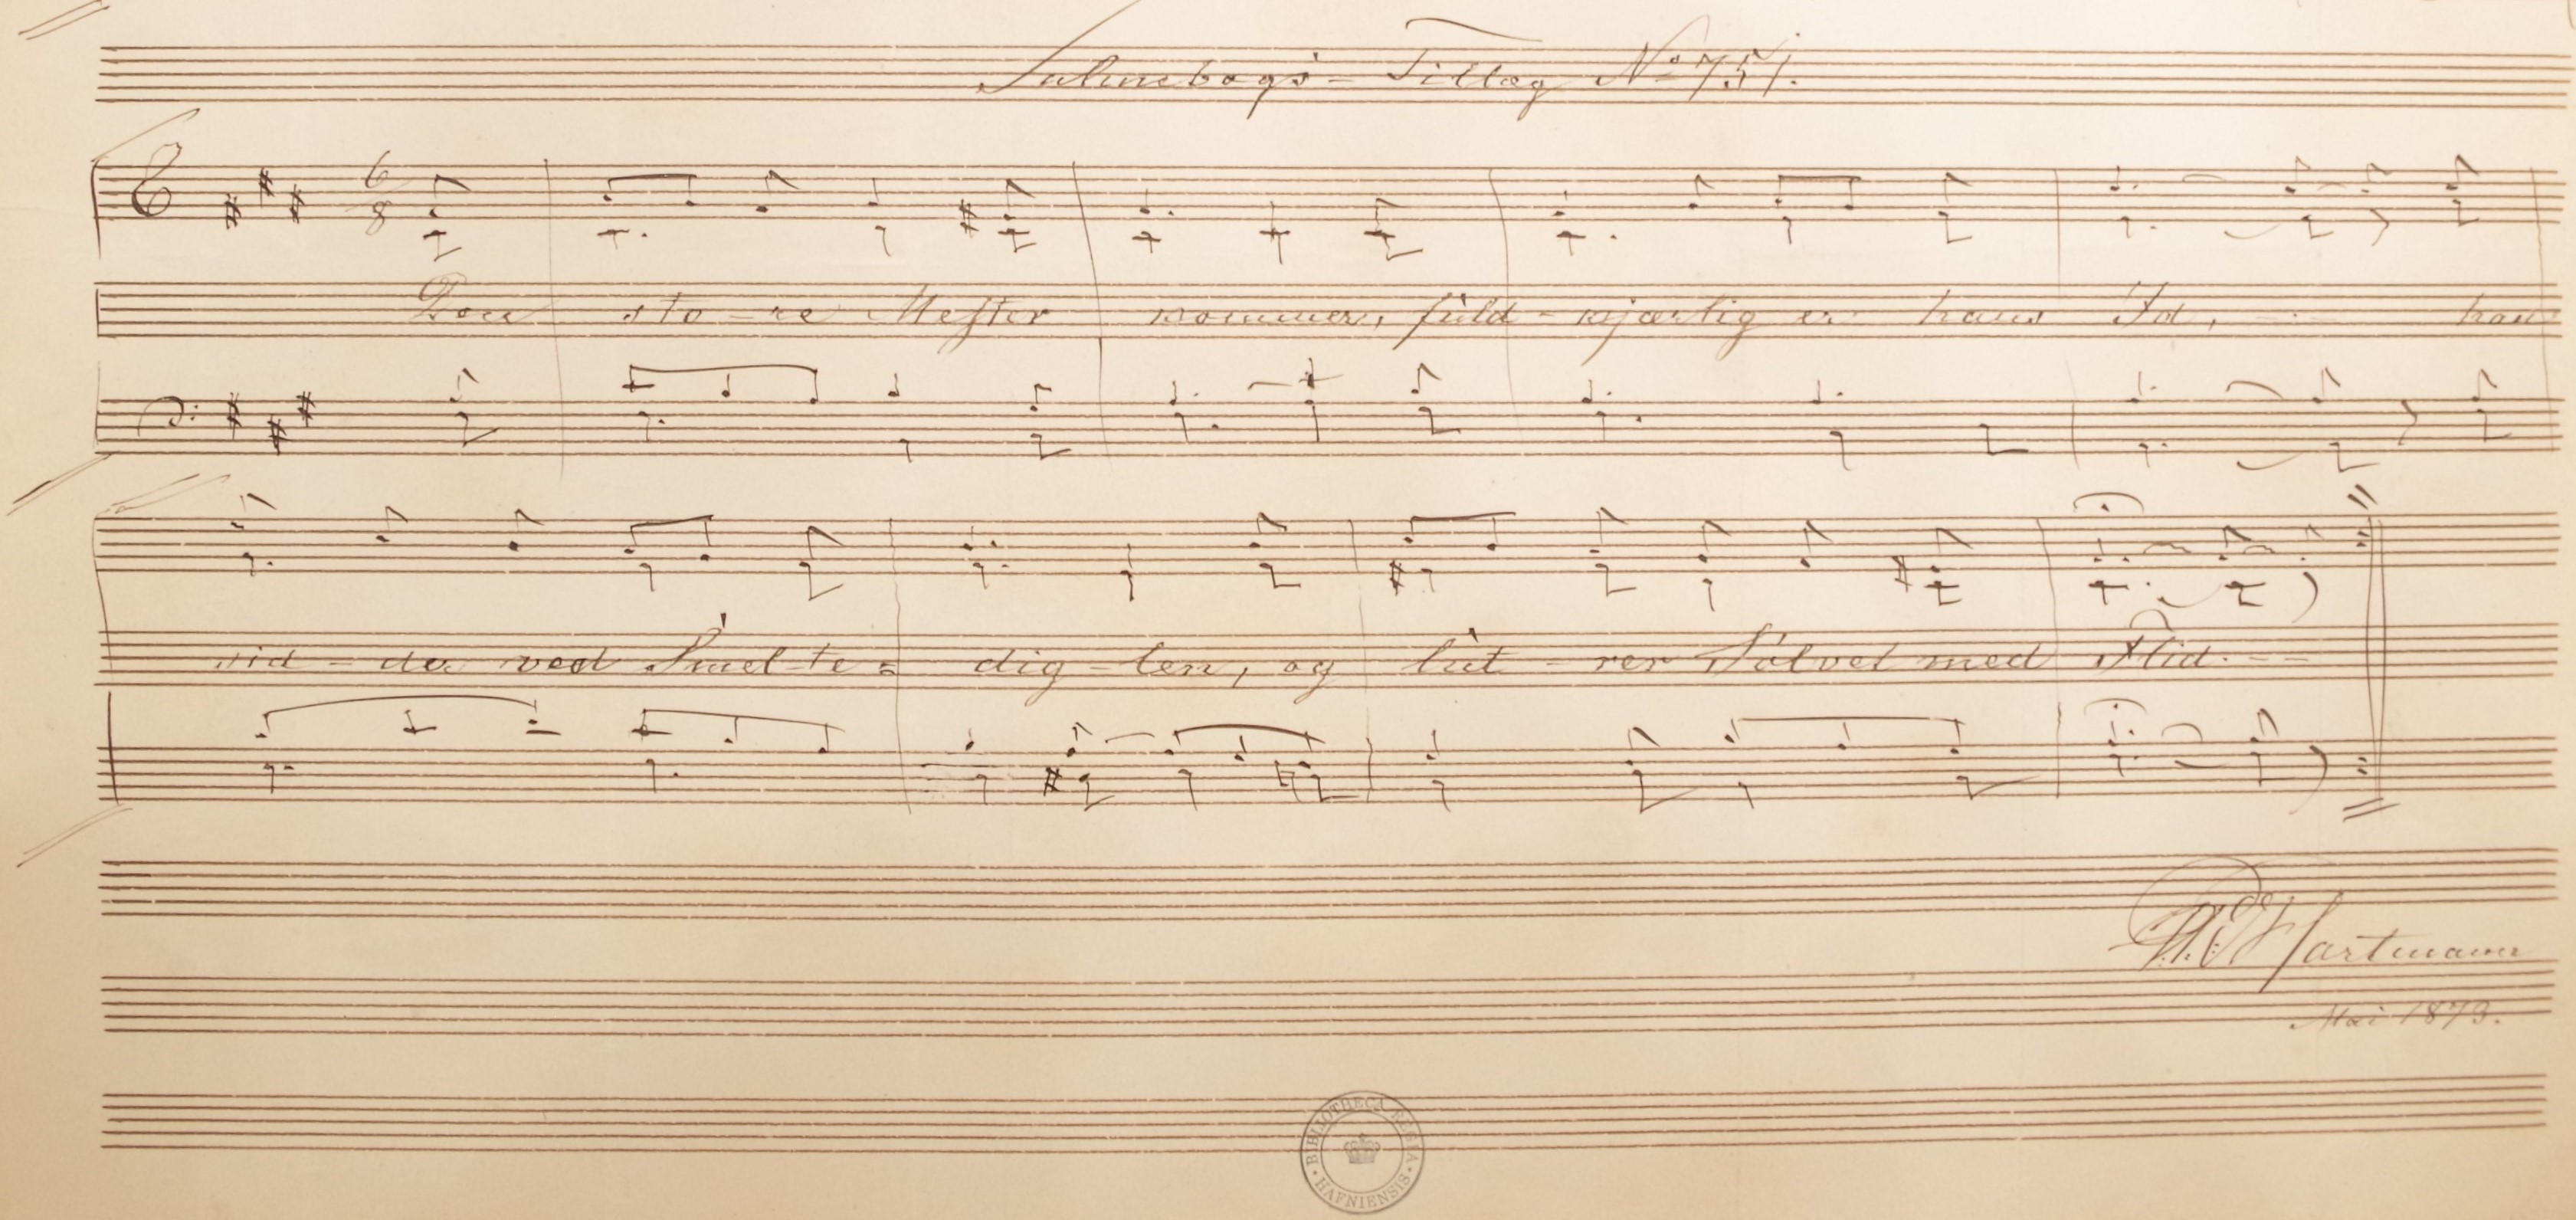 Salmebogs-Tillæg No 751.
6
8
Den sto-re Mester kommer, fuld-kjærlig er hans Id, -- han
sid-der ved Smel-te= dig-len, og lut-rer Sölvet med Flid. --
Hartmann
Mai 1873.
BIBLIOTHECA REGIA HAFNIENSIS